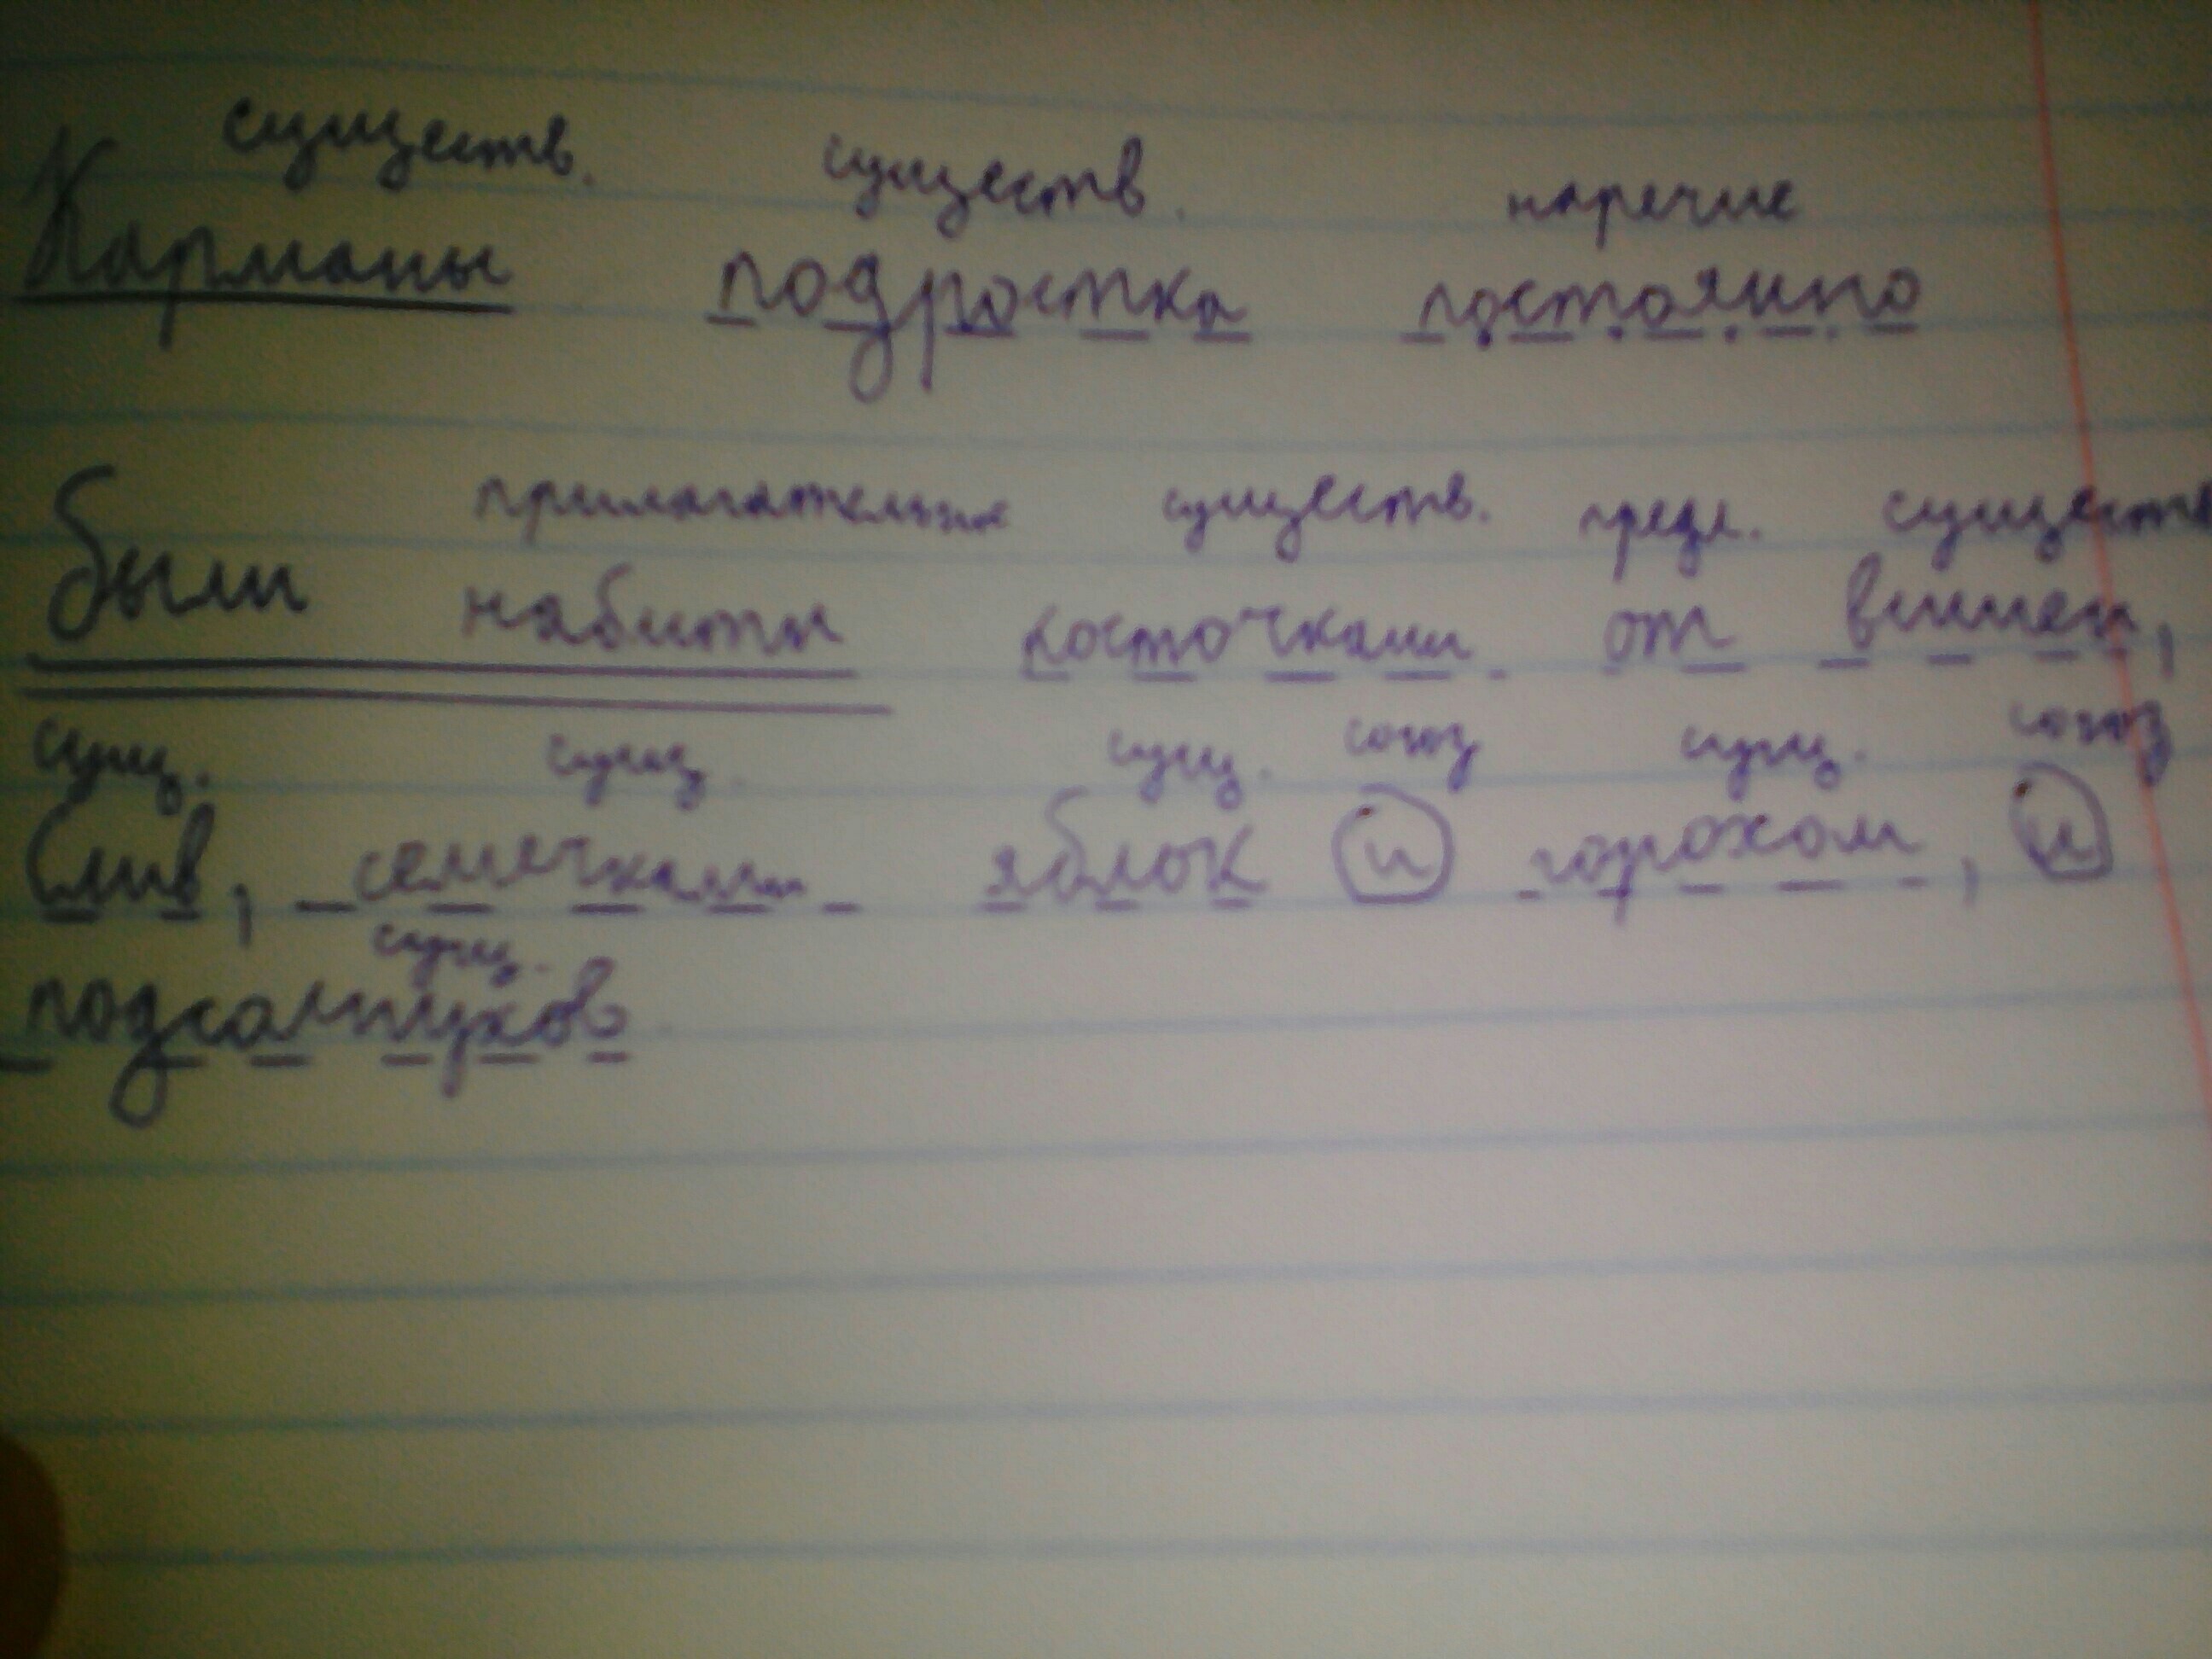 существ. существ. наречие
Карманы подростка постоянно
прилагательное существ. предл. существ
были набиты косточками от вишен,
сущ. сущ. сущ. союз сущ. союз
слив, семечками яблок и горохом, и
сущ.
подсолнухов